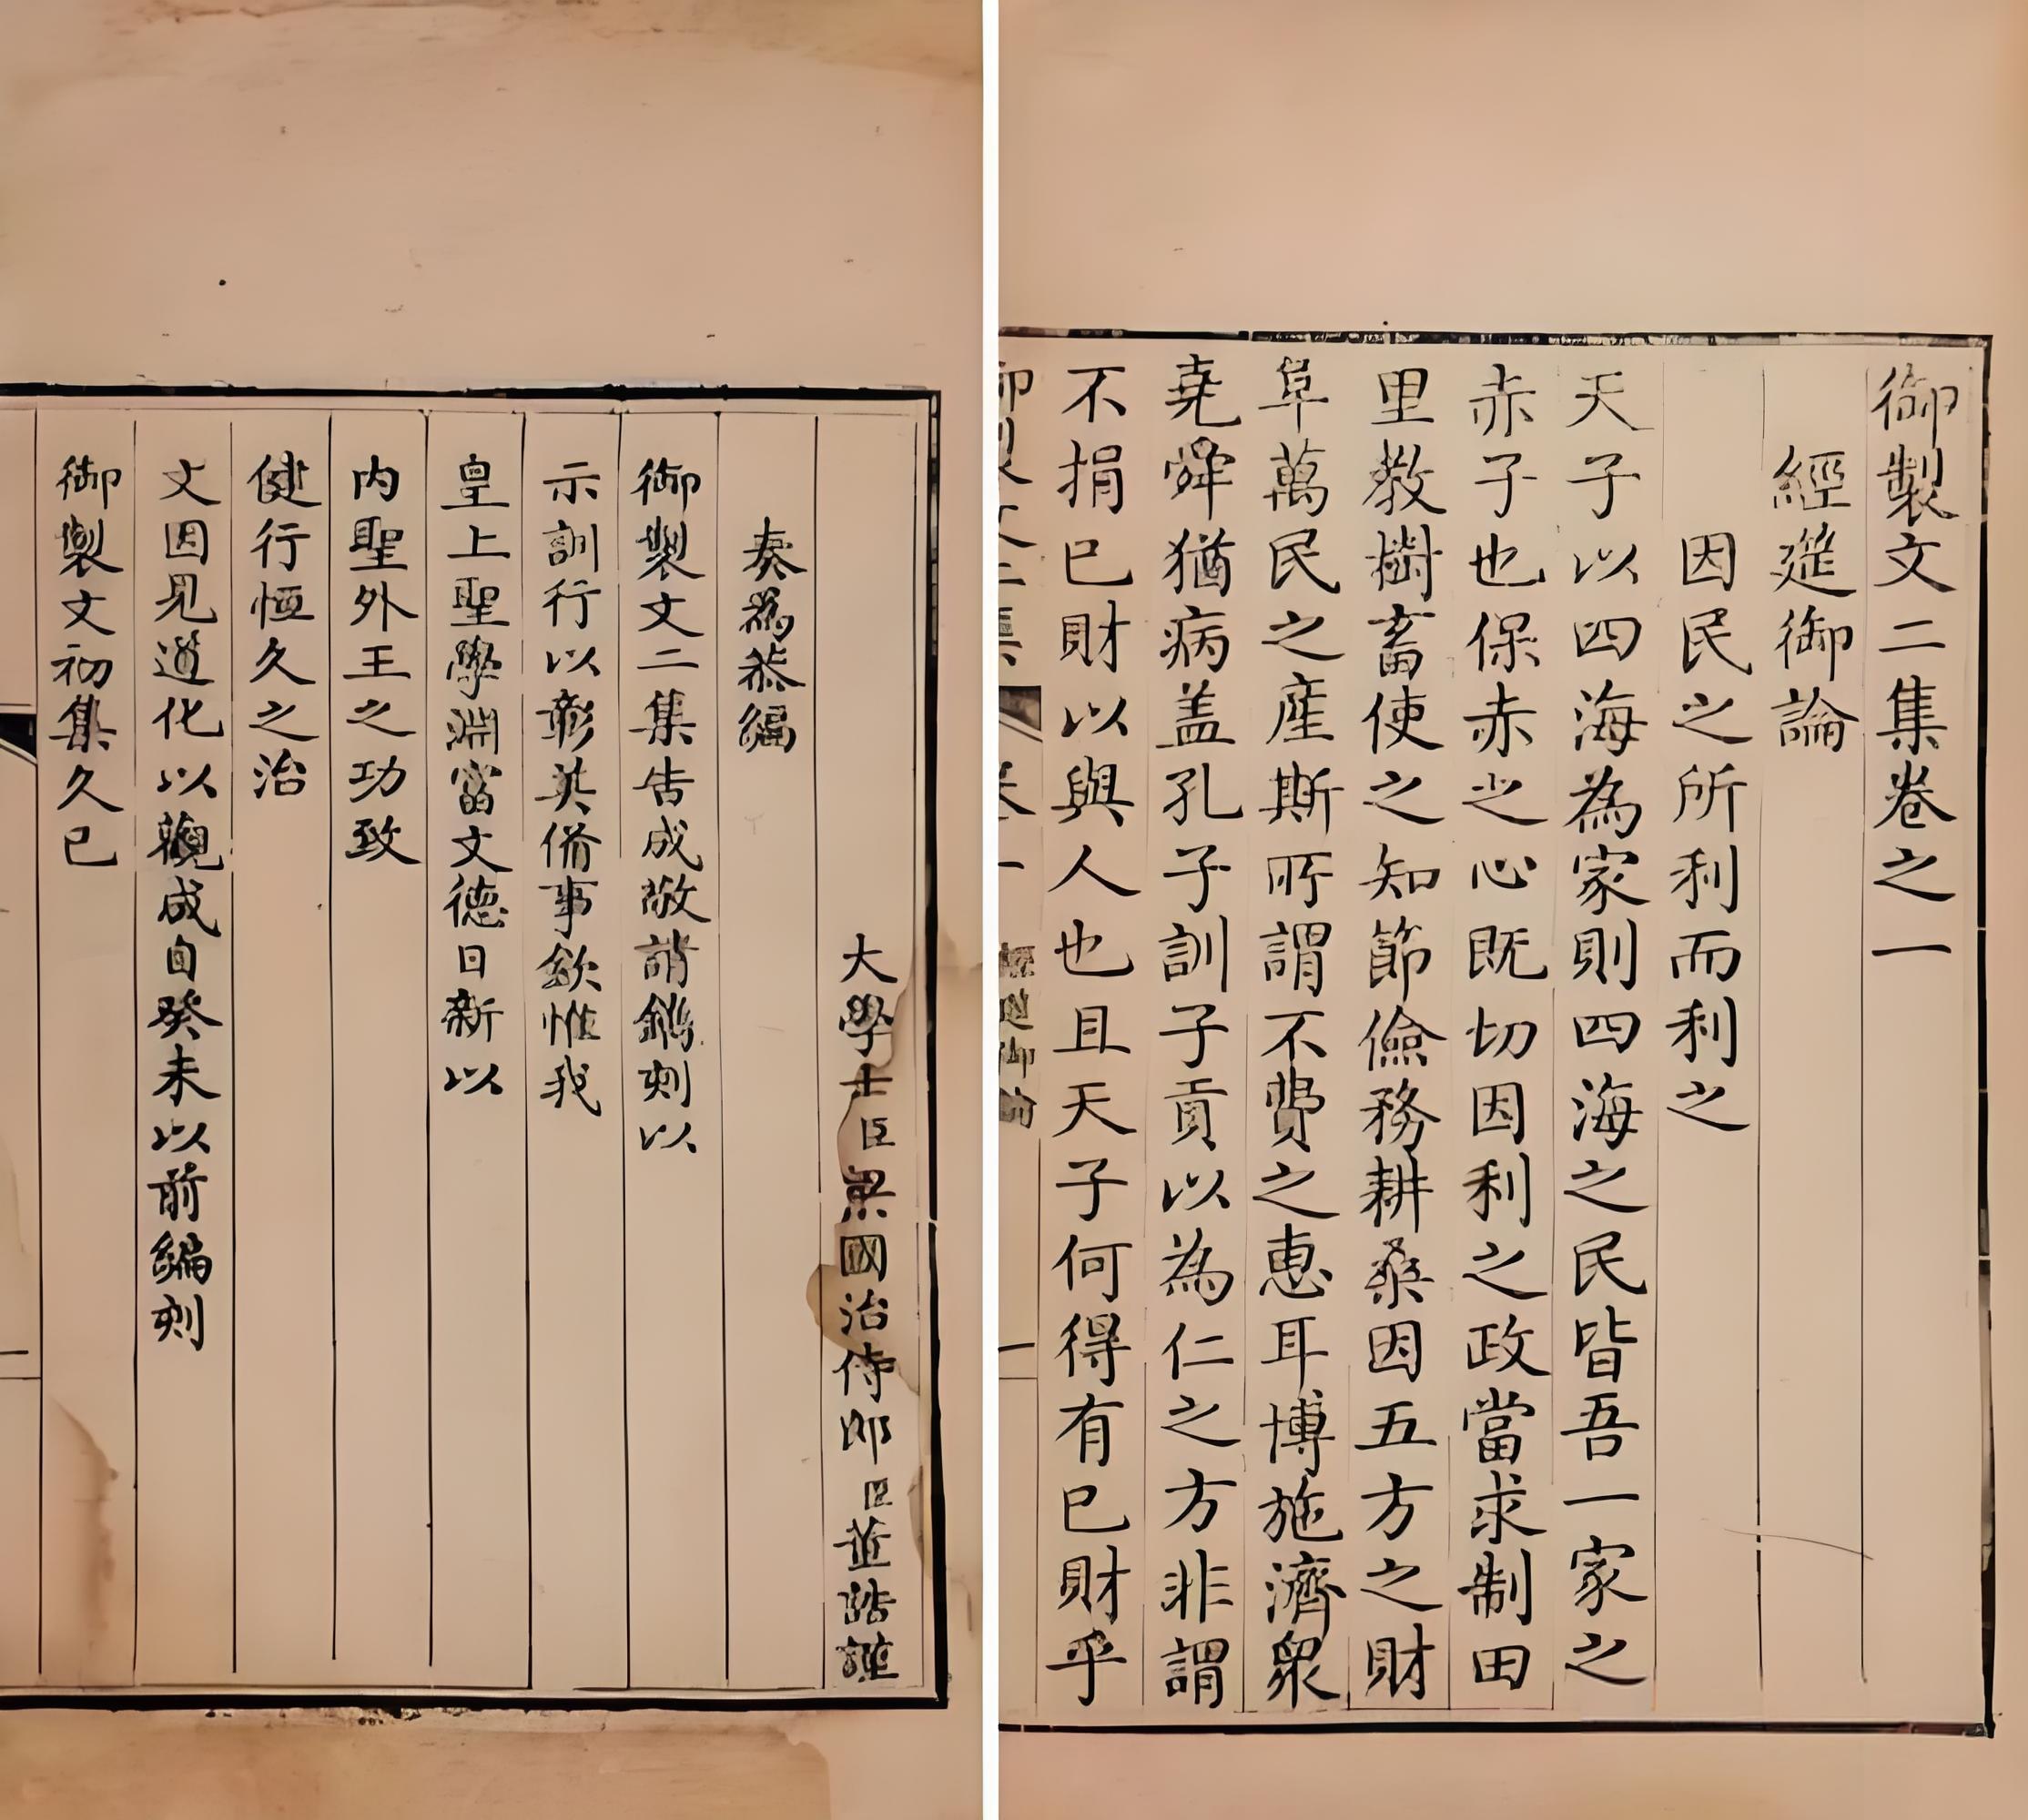 御製文二集卷之一
經筵御論
因民之所利而利之
天子以四海為家則四海之民皆吾一家之
赤子也保赤之心既切因利之政當求制田
里教樹畜使之知節儉務耕桑因五方之財
阜萬民之産斯所謂不費之惠耳博施濟衆
堯舜猶病盖孔子訓子貢以為仁之方非謂
不捐已財以與人也且天子何得有已財乎
大學士臣梁國治侍郎臣董誥謹
奏為恭編
御製文二集告成敬請鐫刻以
示訓行以彰美備事欽惟我
皇上聖學淵富文德日新以
内聖外王之功致
健行恒久之治
文因見道化以觀成自癸未以前編刻
御製文初集久已